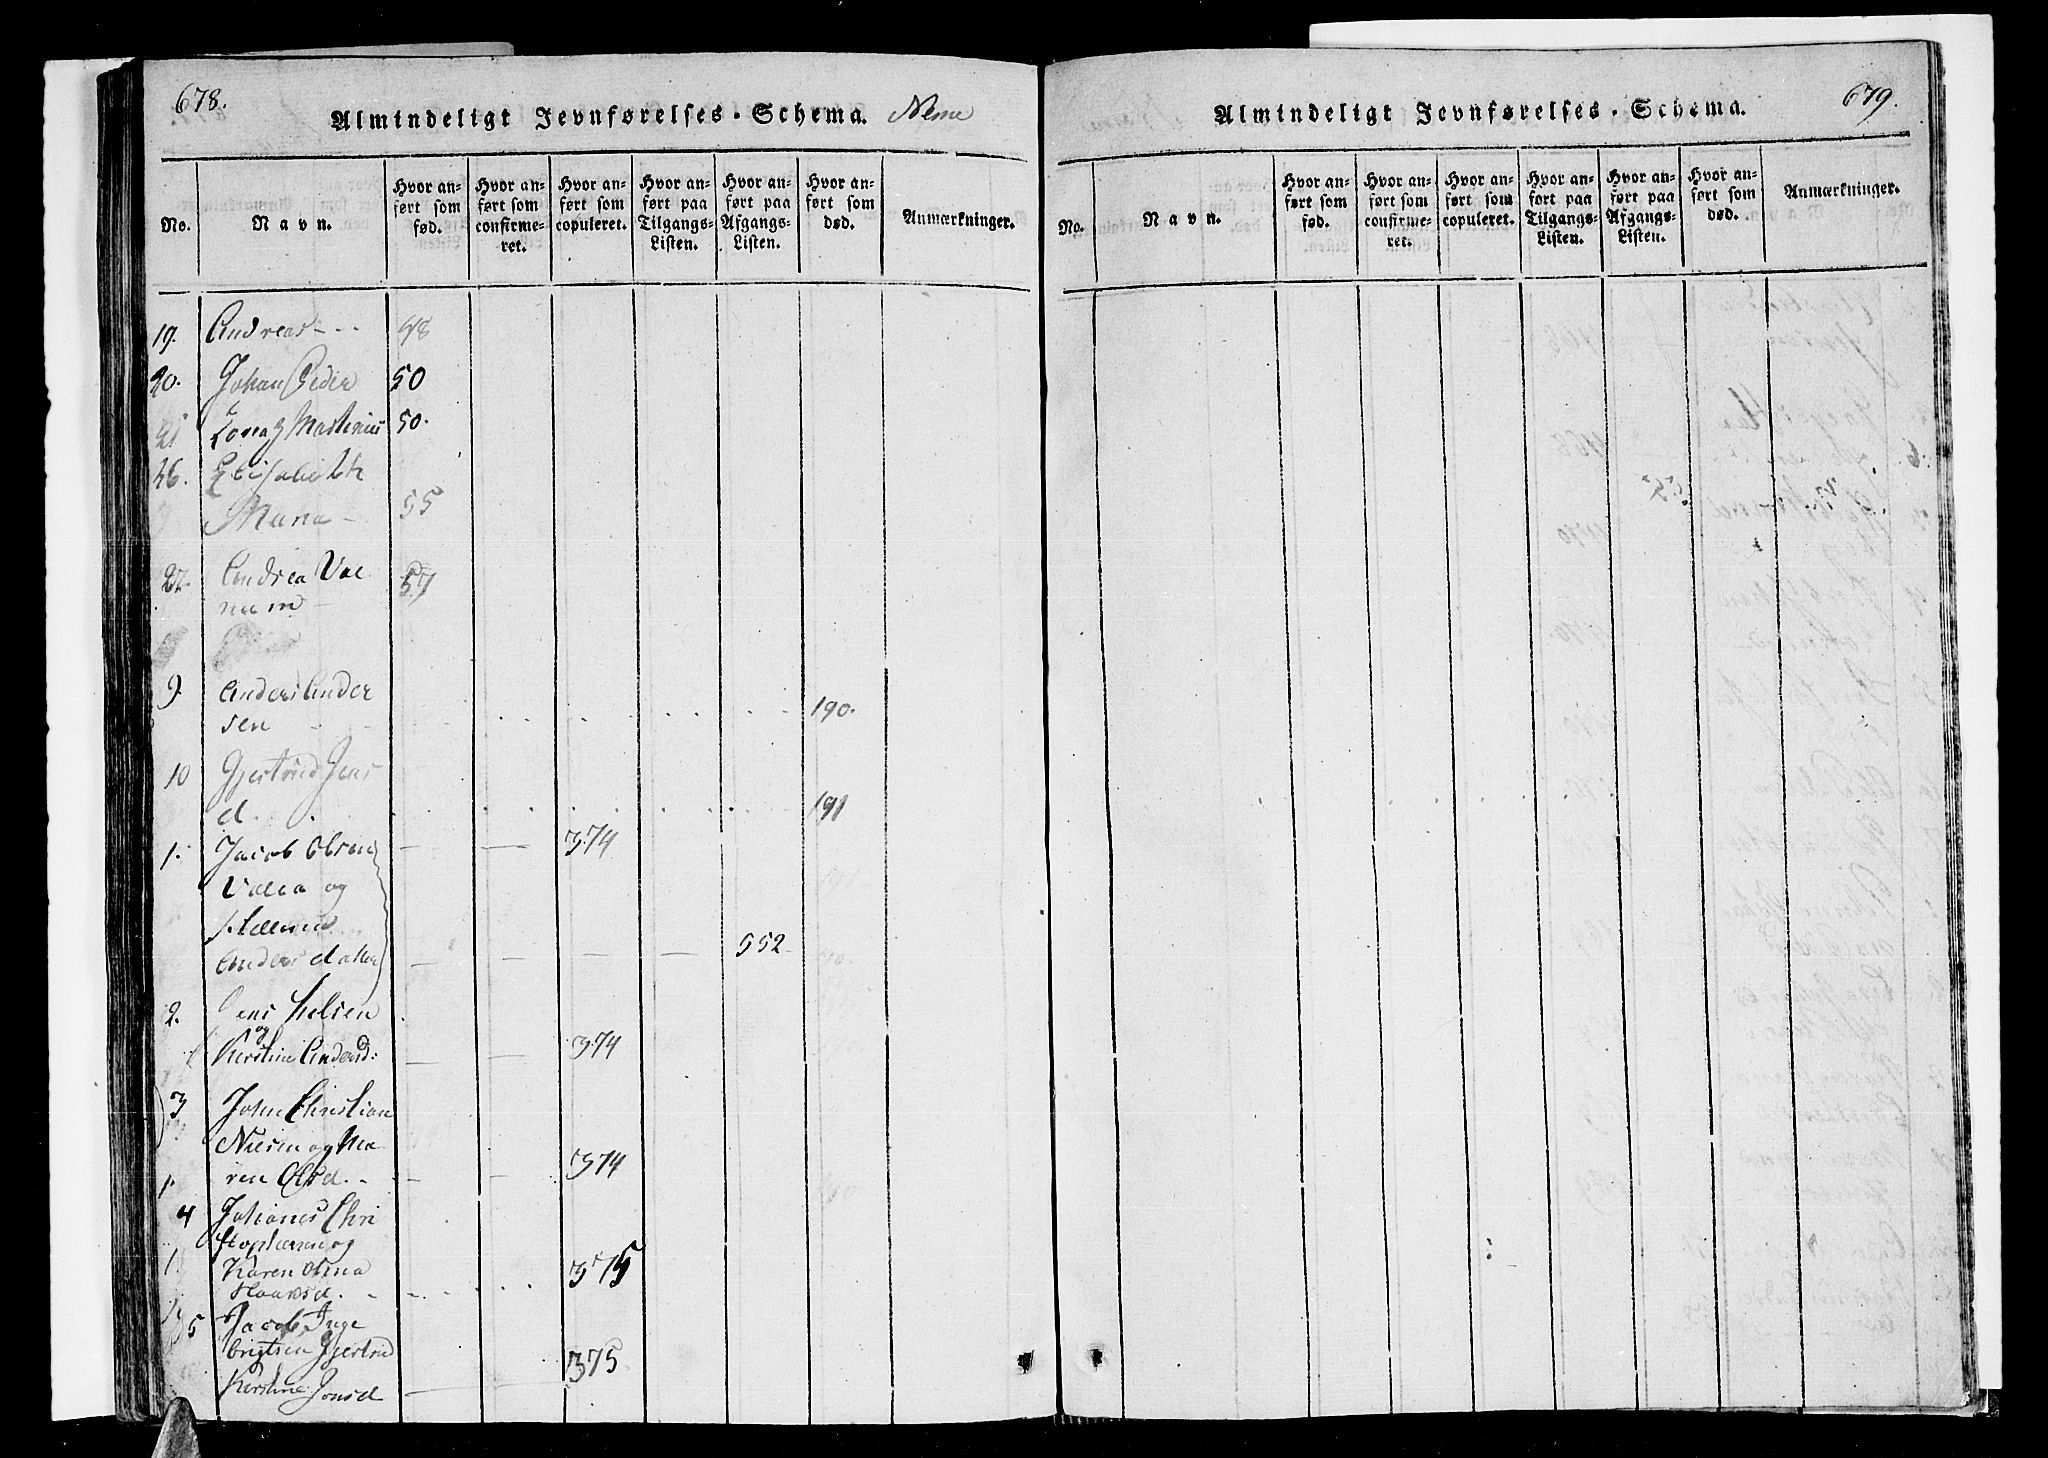 678.
Almindeligt Jevnførelses-Schema.
No.
Navn.
Hvor an-
ført som
fød.
Hvor an-
ført som
confirme-
ret.
Hvor an-
ført som
copuleret.
Hvor an-
ført paa
Tilgangs-
Listen.
Hvor an-
ført paa
Afgangs-
Listen.
Hvor an-
ført som
død.
Anmærkninger.
19. Andreas - - - 48
20. Johan Peder 50
21 Martinus 50.
26. Elisabeth
Maria - 55
27. Andrea Va 57
9. Anders Ander
sen 190.
10 Gjertrud Jens
d. 191
1. Jacob Olsen 374
og
Anders 552
2. Jens
og
Kirstine Andersd: 374
3 John Christian
Nielsen og Ma
ren Olsd. 374
4 Johanes Chri
stophersen og
Karen
375
5 Jacob Inge
brigtsen Gjertrud 375
Kirstine Jonsd
679.
Almindeligt Jevnførelses-Schema.
No.
Navn.
Hvor an-
ført som
fød.
Hvor an-
ført som
confirme-
ret.
Hvor an-
ført som
copuleret.
Hvor an-
ført paa
Tilgangs-
Listen.
Hvor an-
ført paa
Afgangs-
Listen.
Hvor an-
ført som
død.
Anmærkninger.